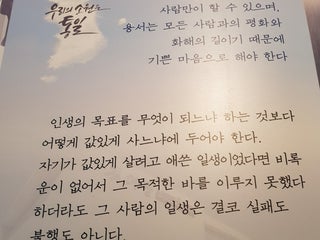 우리의 소원은
통일
사람만이 할 수 있으며,
용서는 모든 사람과의 평화와
화해의 길이기 때문에
기쁜 마음으로 해야 한다
인생의 목표를 무엇이 되느냐 하는 것보다
어떻게 값있게 사느냐에 두어야 한다.
자기가 값있게 살려고 애쓴 일생이었다면 비록
운이 없어서 그 목적한 바를 이루지 못했다
하더라도 그 사람의 일생은 결코 실패도
불행도 아니다.